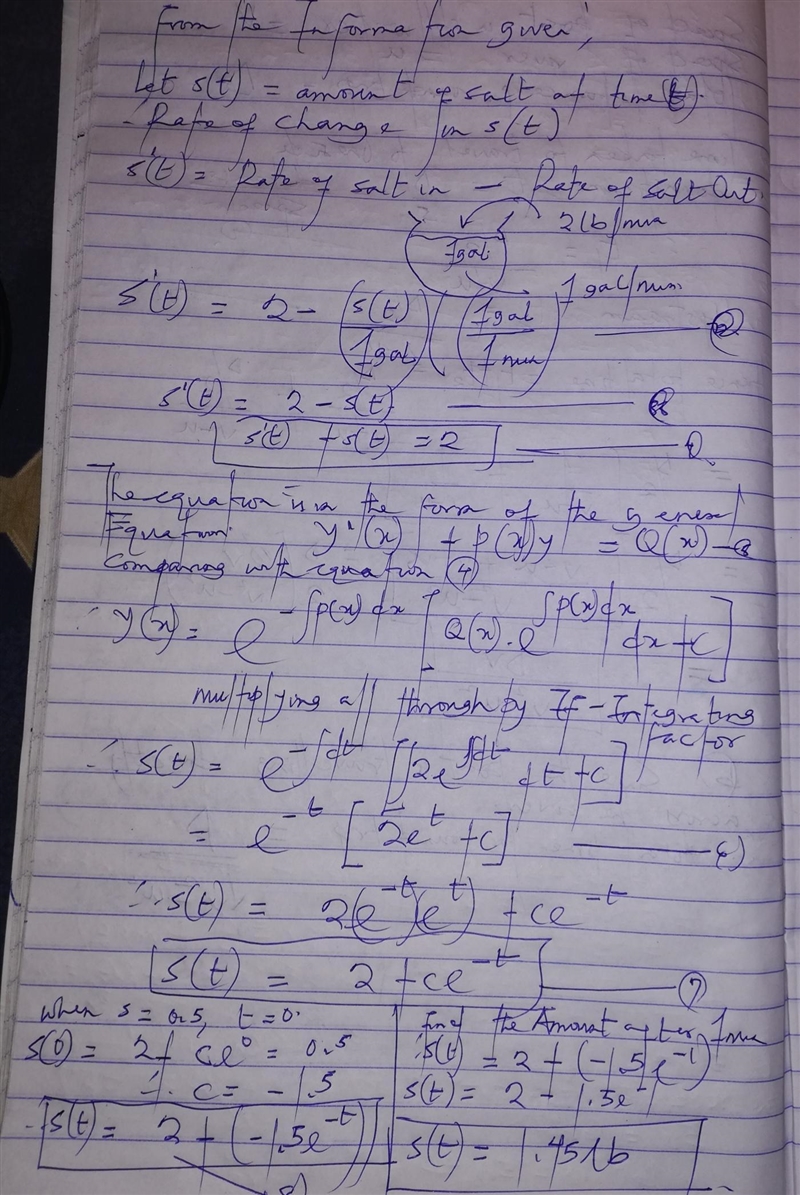 From the Information given,
Let s(t) = amount of salt at time (t).
∴ Rate of change in s(t)
s'(t) = Rate of salt in – Rate of Salt Out.
2 lb/min
1 gal
1 gal/min
S'(t) = 2 – (s(t)/1 gal) (1 gal/1 min)
s'(t) = 2 – s(t)
s'(t) + s(t) = 2
The equation is in the form of the general
Equation y'(x) + p(x)y = Q(x)
Comparing with equation (4)
∴ y(x) = e^{-∫p(x)dx} [Q(x)·e^{∫p(x)dx} dx + c]
multiplying all through by If – Integrating
factor
∴ s(t) = e^{-∫dt} [∫2e^{∫dt} dt + c]
= e^{-t} [2e^t + c]
∴ s(t) = 2(e^{-t})(e^t) + ce^{-t}
s(t) = 2 + ce^{-t} — (7)
when s = 0.5, t = 0.
s(0) = 2 + ce^0 = 0.5
∴ c = -1.5
∴ s(t) = 2 + (-1.5e^{-t})
find the Amount after 1 min
∴ s(t) = 2 + (-1.5e^{-1})
s(t) = 2 - 1.5e^{-1}
s(t) = 1.45 lb